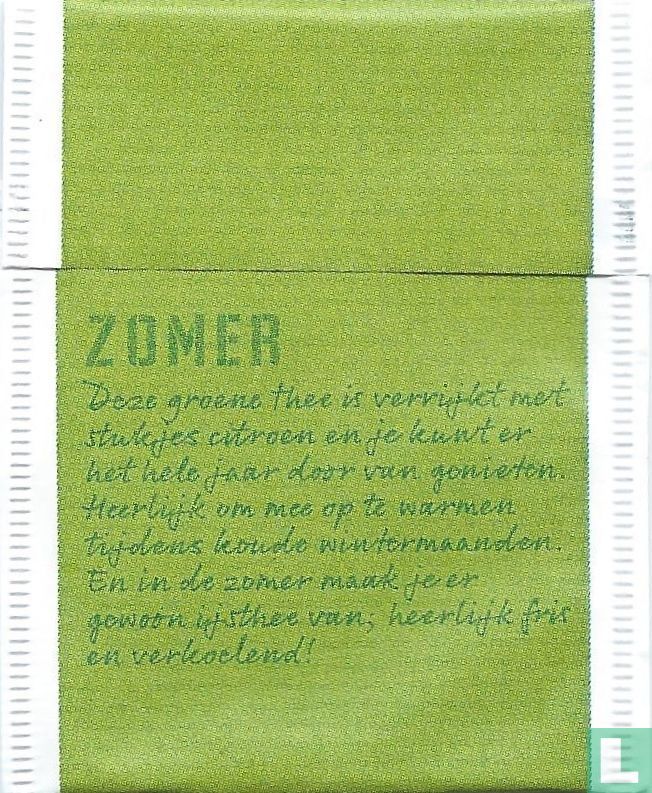 ZOMER
Deze groene thee is verrijkt met
stukjes citroen en je kunt er
het hele jaar door van genieten.
Heerlijk om mee op te warmen
tijdens koude wintermaanden.
En in de zomer maak je er
gewoon ijsthee van; heerlijk fris
en verkoelend!
L